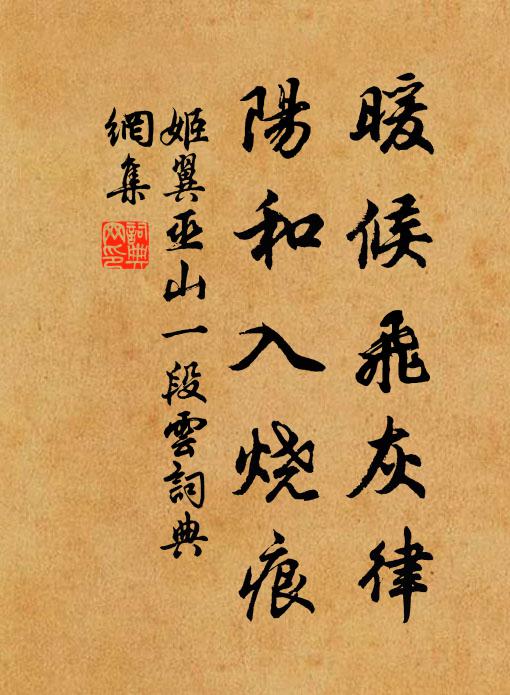 暖候飛灰律
陽和入烧痕
姬翼巫山一段雲詞典
網集
詞典
网印